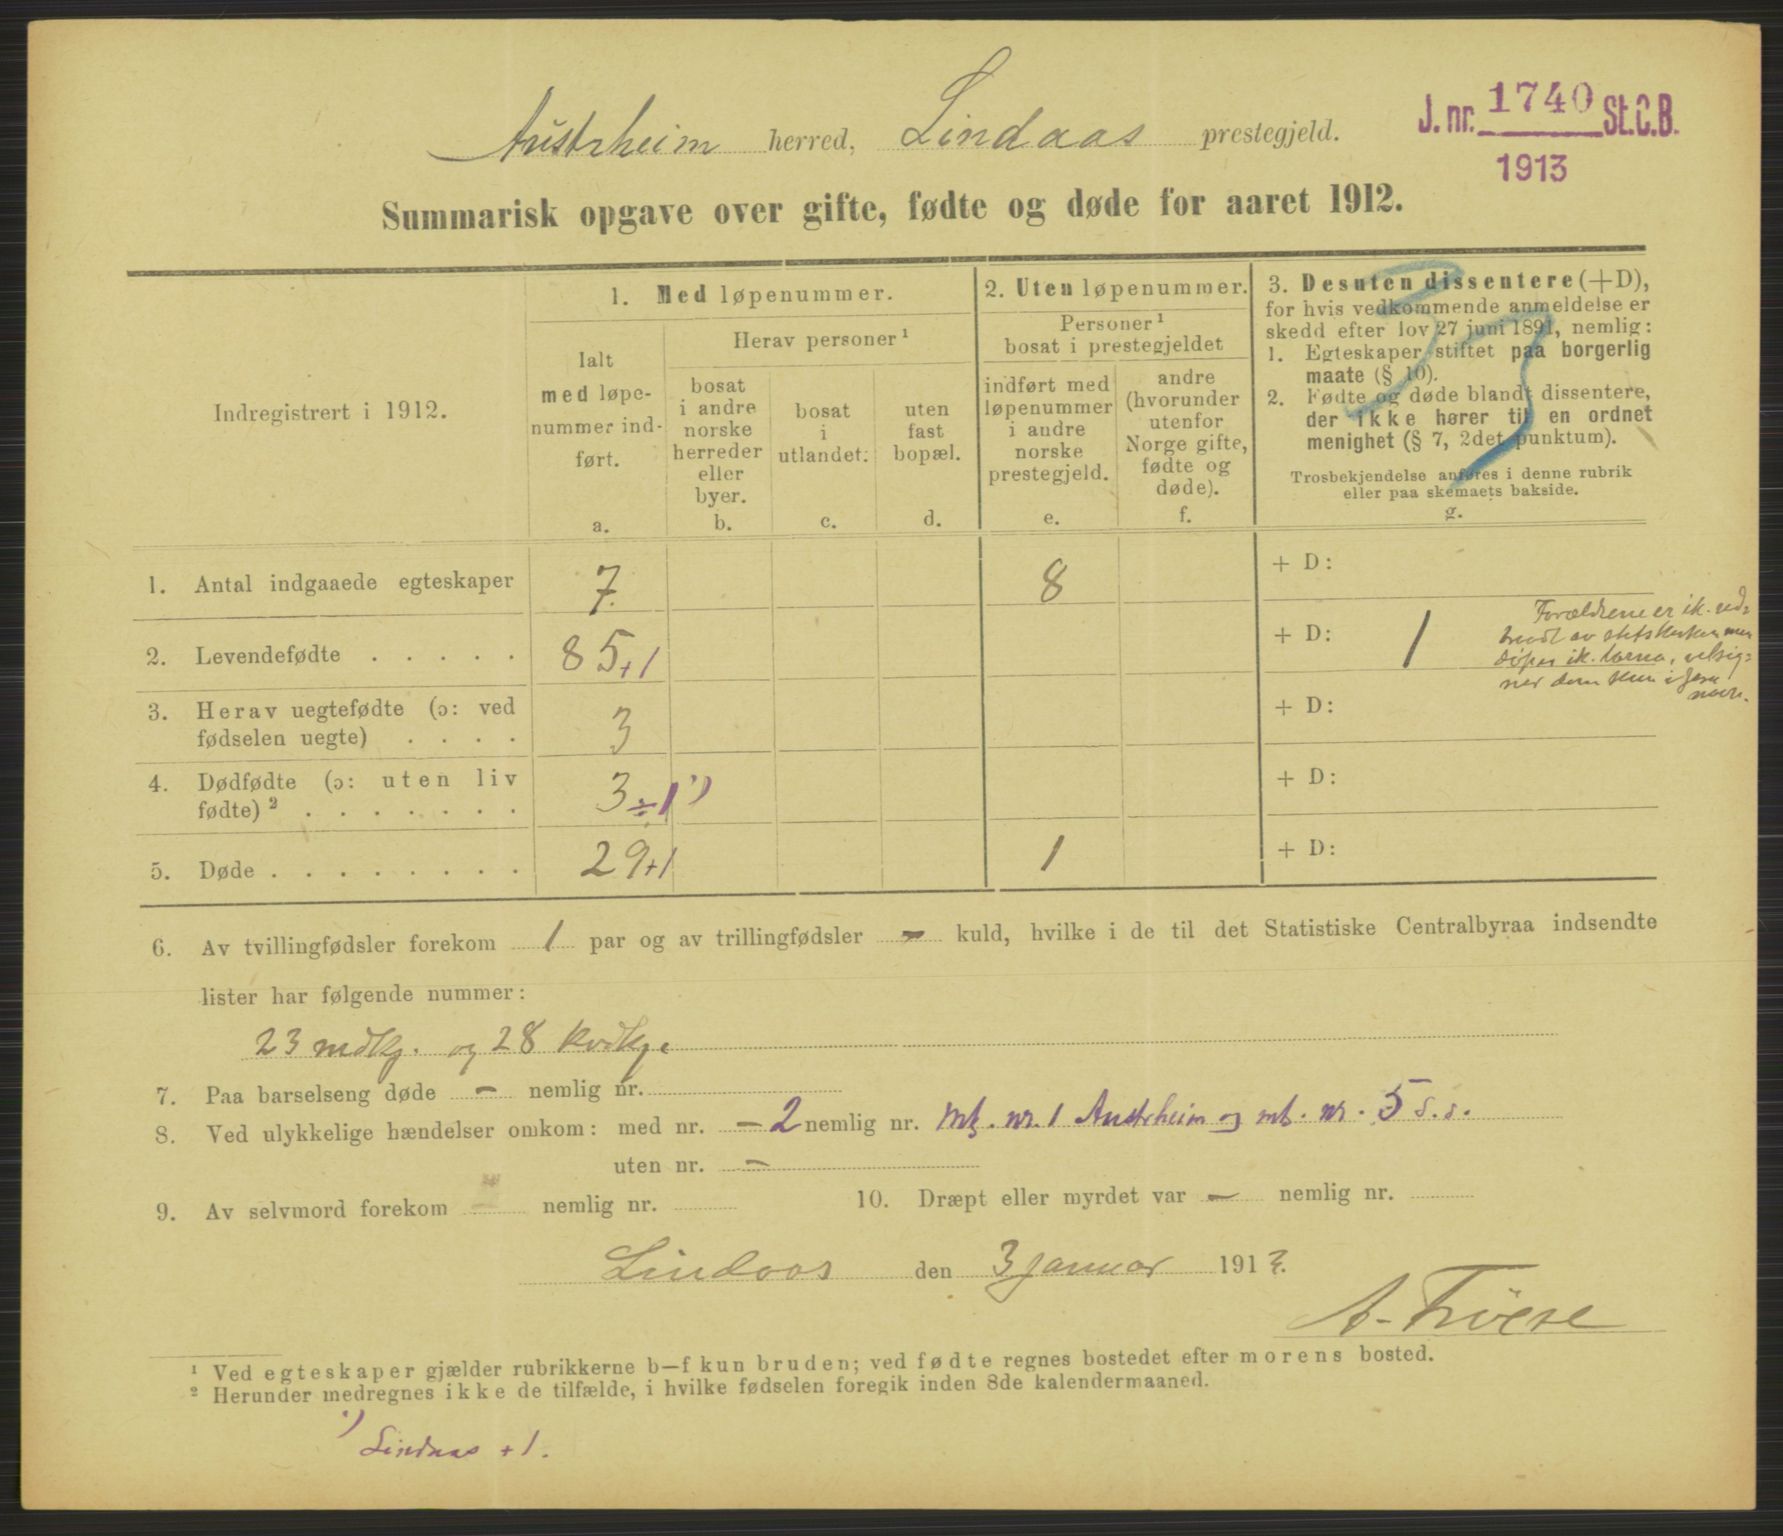 Austrheim herred, Lindaas prestegjeld.
J. nr. 1740 St.C.B.
1913
Summarisk opgave over gifte, fødte og døde for aaret 1912.
Indregistrert i 1912.
1. Med løpenummer.
Ialt
med løpe-
nummer ind-
ført.
a.
Herav personer ¹
bosat
i andre
norske
herreder
eller
byer.
b.
bosat
i
utlandet.
c.
uten
fast
bopæl.
d.
2. Uten løpenummer.
Personer ¹
bosat i prestegjeldet
indført med
løpenummer
i andre
norske
prestegjeld.
e.
andre
(hvorunder
utenfor
Norge gifte,
fødte og
døde).
f.
3. Desuten dissentere (+D),
for hvis vedkommende anmeldelse er
skedd efter lov 27 juni 1891, nemlig:
1. Egteskaper stiftet paa borgerlig
maate (§ 10).
2. Fødte og døde blandt dissentere,
der ikke hører til en ordnet
menighet (§ 7, 2det punktum).
Trosbekjendelse anføres i denne rubrik
eller paa skemaets bakside.
g.
1. Antal indgaaede egteskaper 7. 8 + D:
2. Levendefødte . . . . . 85+1 + D: 1
Forældrene er ik. ud-
av statskirken men
døper ik. barna, velsig-
ner dem kun i Jesu
navn.
3. Herav uegtefødte (ɔ: ved
fødselen uegte) . . . . 3 + D:
4. Dødfødte (ɔ: uten liv
fødte) ² . . . . . . . 3÷1 ¹) + D:
5. Døde . . . . . . . . 29+1 1 + D:
6. Av tvillingfødsler forekom 1 par og av trillingfødsler - kuld, hvilke i de til det Statistiske Centralbyraa indsendte
lister har følgende nummer:
23 mdkj. og 28 kvdkj.
7. Paa barselseng døde - nemlig nr.
8. Ved ulykkelige hændelser omkom: med nr. - 2 nemlig nr. mk. nr. 1 Austrheim og mk. nr. 5 s.s.
uten nr. -
9. Av selvmord forekom nemlig nr.
10. Dræpt eller myrdet var - nemlig nr.
Lindaas den 3 januar 1913.
¹ Ved egteskaper gjælder rubrikkerne b—f kun bruden; ved fødte regnes bostedet efter morens bosted.
² Herunder medregnes ikke de tilfælde, i hvilke fødselen foregik inden 8de kalendermaaned.
¹) Lindaas +1.